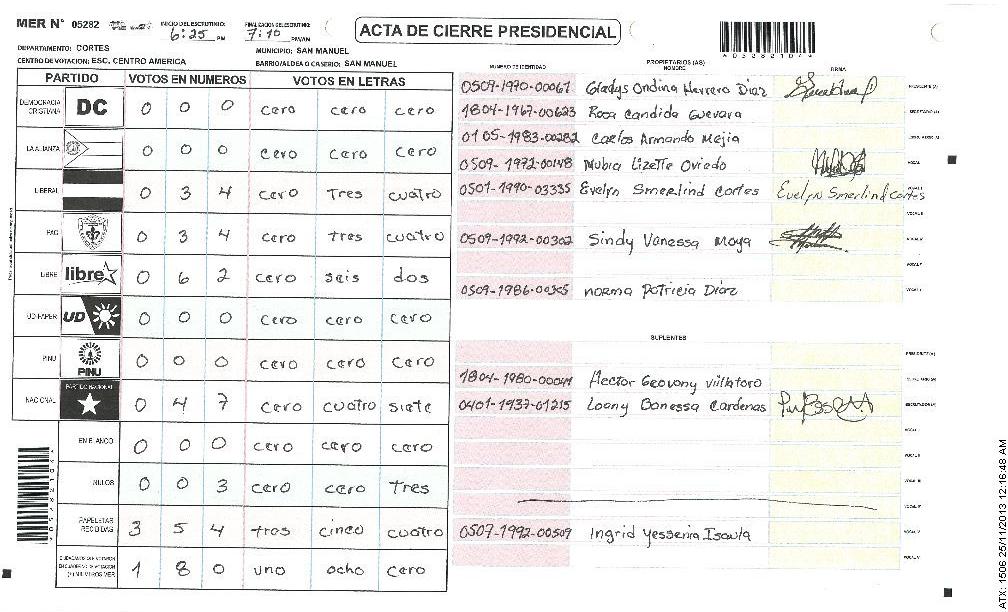 MER N° 05282
INICIO DEL ESCRUTINIO: 6:25 PM
FINALIZACION DEL ESCRUTINIO: 7:10 PM/AM
ACTA DE CIERRE PRESIDENCIAL
DEPARTAMENTO: CORTES
MUNICIPIO: SAN MANUEL
CENTRO DE VOTACION: ESC. CENTRO AMERICA
BARRIO/ALDEA O CASERIO: SAN MANUEL
PARTIDO VOTOS EN NUMEROS VOTOS EN LETRAS
DEMOCRACIA CRISTIANA DC 0 0 0 cero cero cero
LA ALIANZA 0 0 0 cero cero cero
LIBERAL 0 3 4 cero Tres cuatro
PAC 0 3 4 cero tres cuatro
LIBRE libre 0 6 2 cero seis dos
UD-FAPER UD 0 0 0 cero cero cero
PINU PINU 0 0 0 cero cero cero
NACIONAL PARTIDO NACIONAL 0 4 7 cero cuatro siete
EN BLANCO 0 0 0 cero cero cero
NULOS 0 0 3 cero cero tres
PAPELETAS RECIBIDAS 3 5 4 tres cinco cuatro
1 8 0 uno ocho cero
NUMERO DE IDENTIDAD
PROPIETARIOS (AS)
NOMBRE
FIRMA
0509-1970-00067 Gladys Ondina Herrero Diaz
1804-1967-00623 Rosa Candida Guevara
0105-1983-00282 Carlos Armando Mejia
0509-1972-00148 Nubia Lizette Oviedo
0501-1990-03335 Evelyn Smerlind Cortes Evelyn Smerlind Cortes
0509-1992-00302 Sindy Vanessa Moya
0509-1986-00365 norma Patricia Diaz
SUPLENTES
Hector Geovony villatoro
0401-1937-01215 Loany Banessa Cardenas
0507-1992-00509 Ingrid Yessenia Isaula
ATX: 1506 25/11/2013 12:16:48 AM